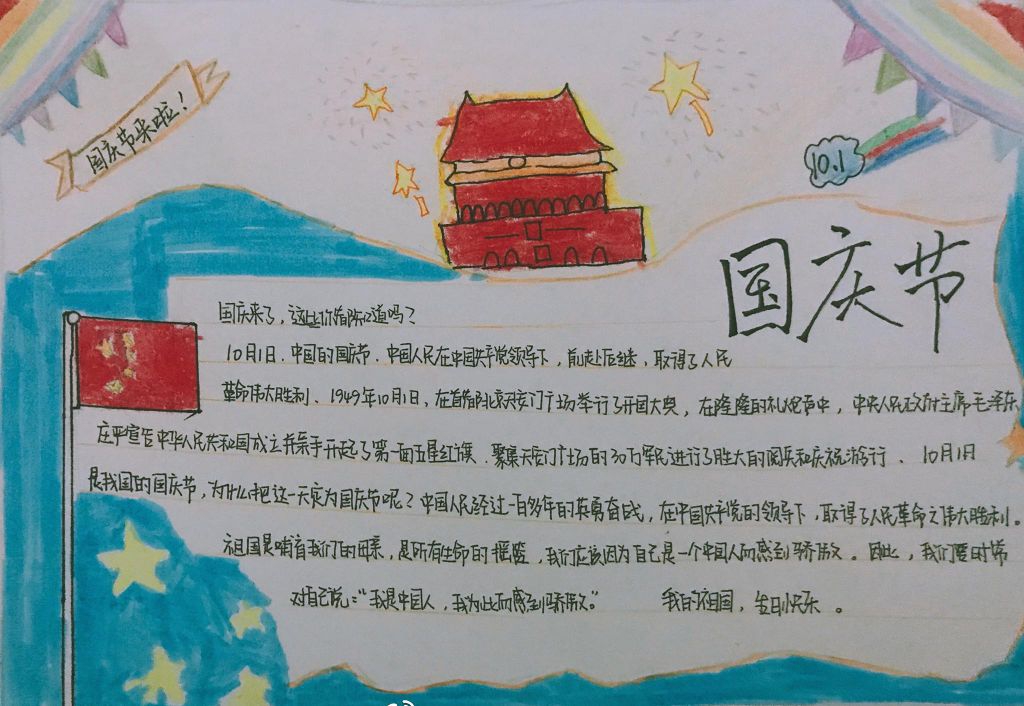 国庆节来啦！
10.1
国庆节
国庆来了，这些你都知道吗？
10月1日.中国的国庆节.中国人民在中国共产党领导下，前赴后继，取得了人民
革命伟大胜利、1949年10月1日，在首都北京天安门广场举行了开国大典，在隆隆的礼炮声中，中央人民政府主席毛泽东
庄严宣告中华人民共和国成立并亲手升起了第一面五星红旗.聚集天安门广场的30万军民进行了胜大的阅兵和庆祝游行、10月1日
是我国的国庆节，为什么把这一天定为国庆节呢？中国人民经过一百多年的英勇奋战，在中国共产党的领导下，取得了人民革命之伟大胜利。
祖国是哺育我们的母亲，是所有生命的摇篮，我们应该因为自己是一个中国人而感到骄傲。因此，我们要时常
对自己说：“我是中国人，我为此而感到骄傲。” 我的祖国，生日快乐。